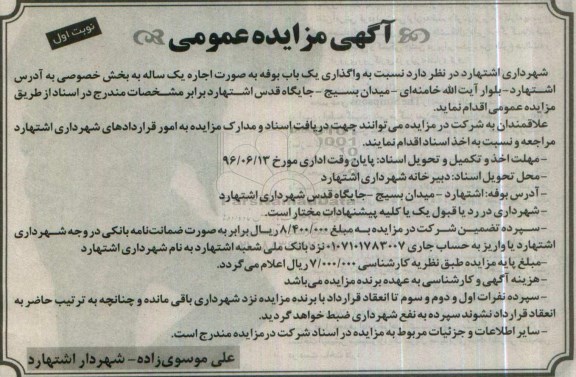 نوبت اول
آگهی مزایده عمومی
شهرداری اشتهارد در نظر دارد نسبت به واگذاری یک باب بوفه به صورت اجاره یک ساله به بخش خصوصی به آدرس
اشتهارد-بلوار آیت الله خامنه‌ای - میدان بسیج - جایگاه قدس اشتهارد برابر مشخصات مندرج در اسناد از طریق
مزایده عمومی اقدام نماید.
علاقمندان به شرکت در مزایده می‌توانند جهت دریافت اسناد و مدارک مزایده به امور قراردادهای شهرداری اشتهارد
مراجعه و نسبت به اخذ اسناد اقدام نمایند.
-مهلت اخذ و تکمیل و تحویل اسناد: پایان وقت اداری مورخ ۹۶/۰۶/۱۳
-محل تحویل اسناد: دبیرخانه شهرداری اشتهارد
-آدرس بوفه: اشتهارد - میدان بسیج -جایگاه قدس شهرداری اشتهارد
-شهرداری در رد یا قبول یک یا کلیه پیشنهادات مختار است.
-سپرده تضمین شرکت در مزایده به مبلغ ۸/۴۰۰/۰۰۰ ریال برابر به صورت ضمانت‌نامه بانکی در وجه شهرداری
اشتهارد یا واریز به حساب جاری ۰۱۰۷۱۰۱۷۸۳۰۰۷ نزد بانک ملی شعبه اشتهارد به نام شهرداری اشتهارد
-مبلغ پایه مزایده طبق نظریه کارشناسی ۷/۰۰۰/۰۰۰ ریال اعلام می‌گردد.
-هزینه آگهی و کارشناسی به عهده برنده مزایده می‌باشد
-سپرده نفرات اول و دوم و سوم تا انعقاد قرارداد با برنده مزایده نزد شهرداری باقی مانده و چنانچه به ترتیب حاضر به
انعقاد قرارداد نشوند سپرده به نفع شهرداری ضبط خواهد گردید.
-سایر اطلاعات و جزئیات مربوط به مزایده در اسناد شرکت در مزایده مندرج است.
علی موسوی‌زاده- شهردار اشتهارد